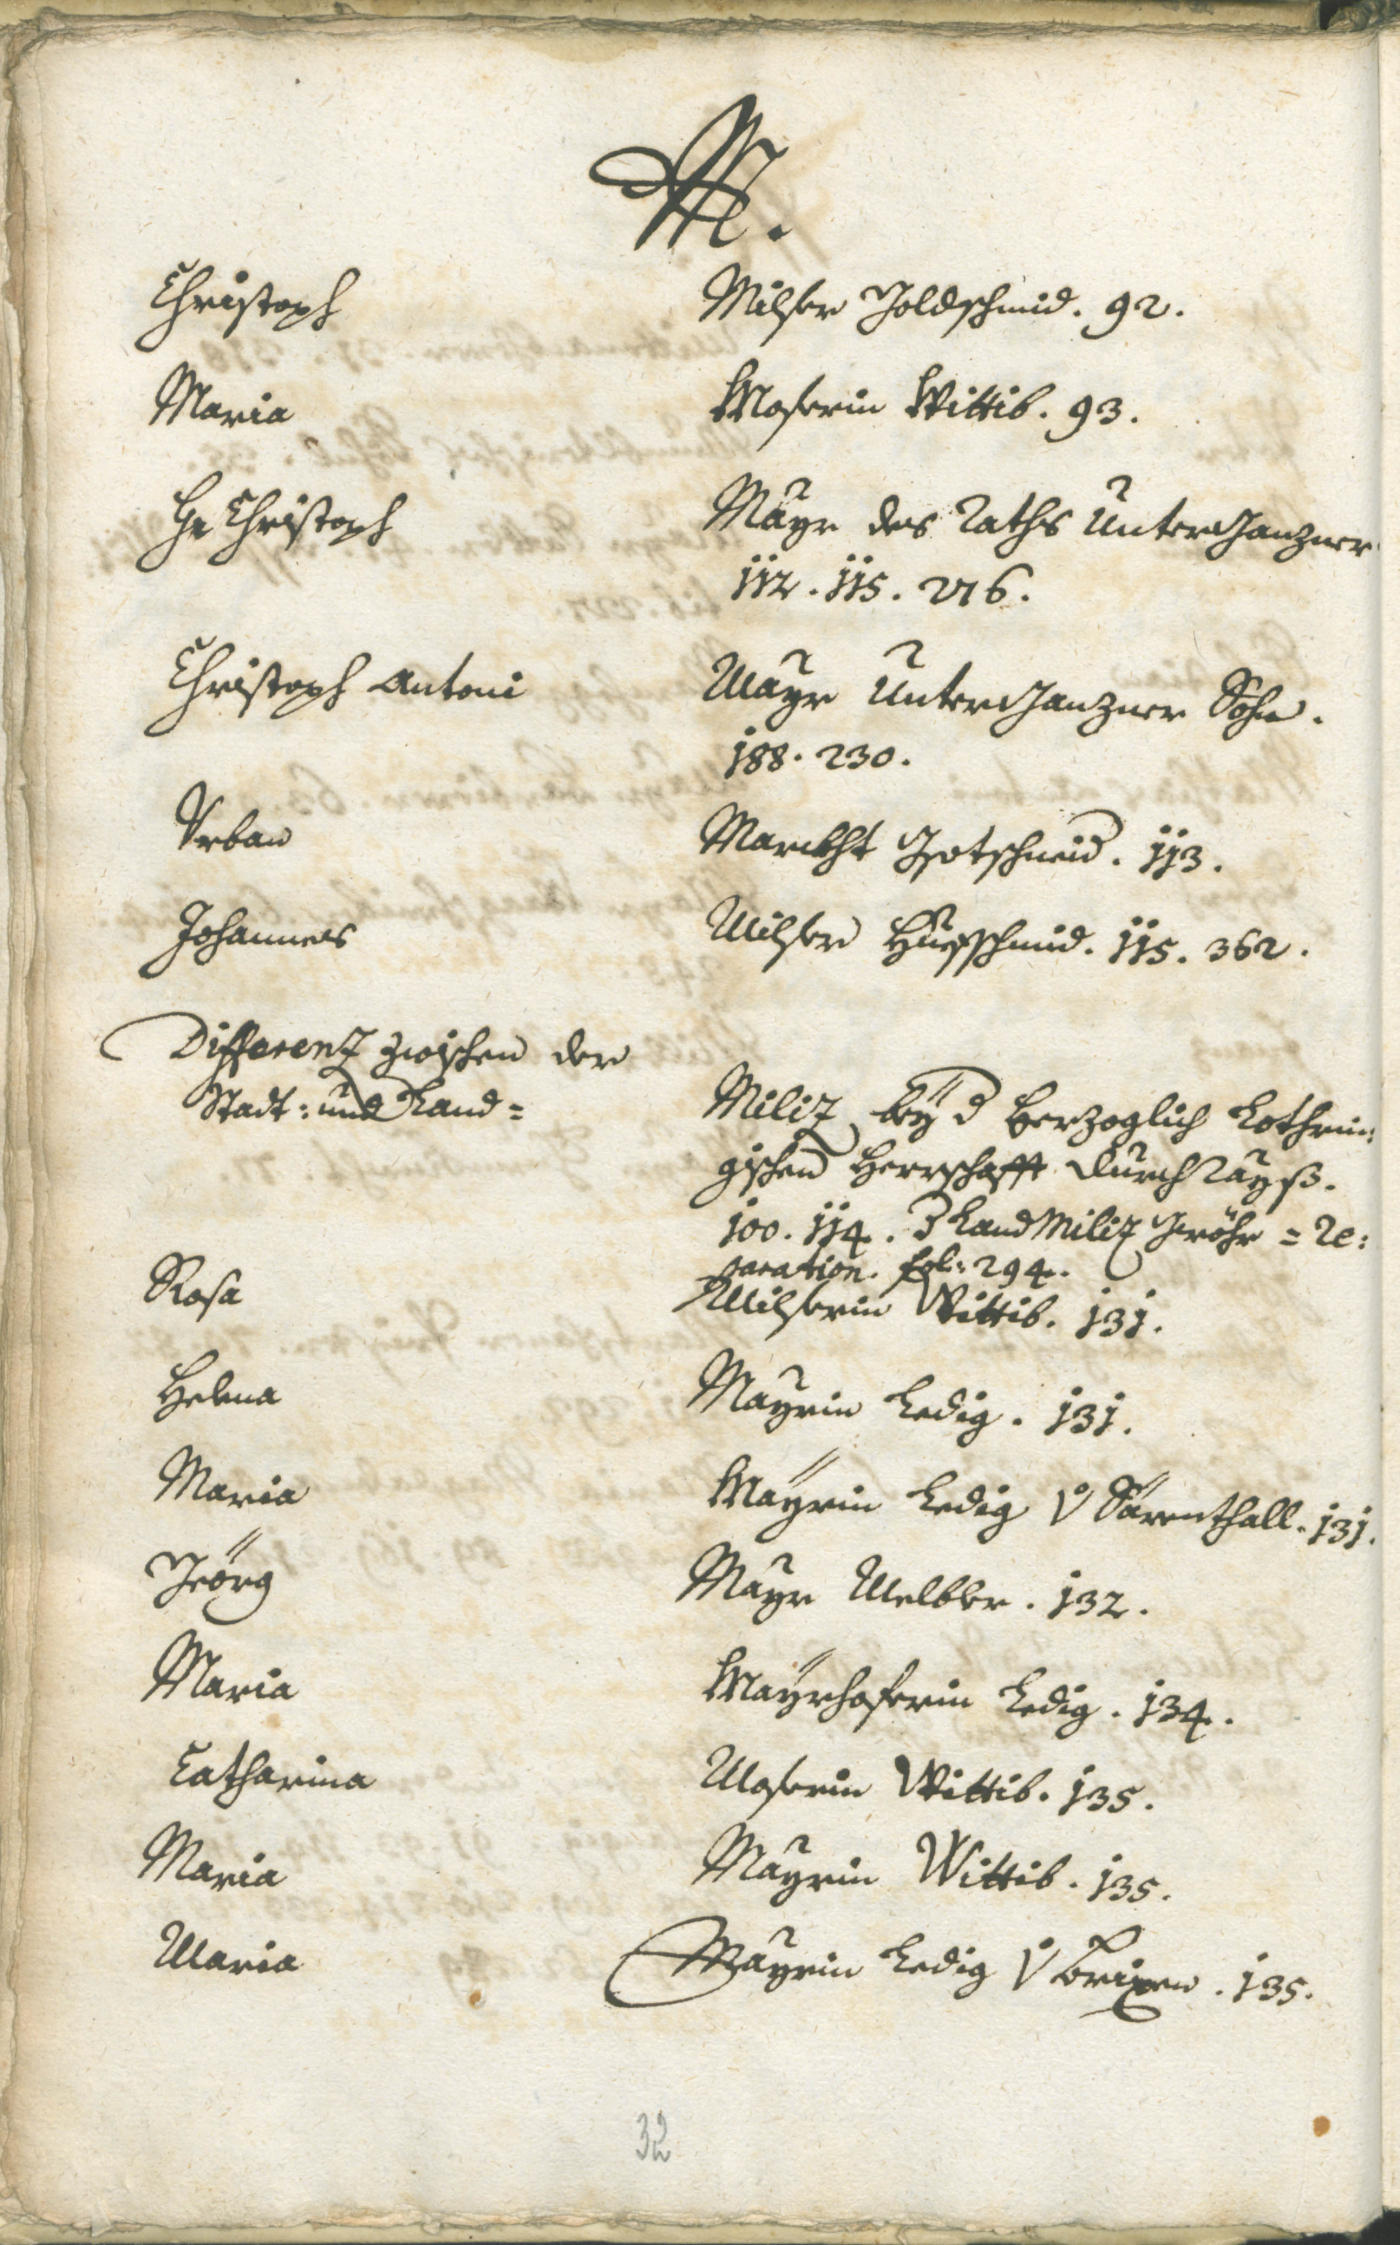 M.
Christoph Milser Goldschmid. 92.
Maria Moserin Wittib. 93.
Hr Christoph Mayr des Raths Unterganzner
112. 115. 276.
Christoph Antoni Mayr Unterganzner Sohn.
188. 230.
Urban Marckht Gotschneid. 113.
Johannes Milser Huefschmid. 115. 362.
Differenz zwischen der
Stadt: und Land= Miliz bey d Herzoglich Lothrin:
gischen Herrschafft Durch Rayß.
100. 114. LandMiliz Gwöhr = Re:
paration. fol: 294.
Rosa Milserin Wittib. 131.
Helena Mayrin Ledig. 131.
Maria Mayrin Ledig v Sarenthall. 131.
Geörg Mayr Melbler. 132.
Maria Mayrhoferin Ledig. 134.
Catharina Moserin Wittib. 135.
Maria Mayrin Wittib. 135.
Maria Mayrin Ledig v Brixen. 135.
32